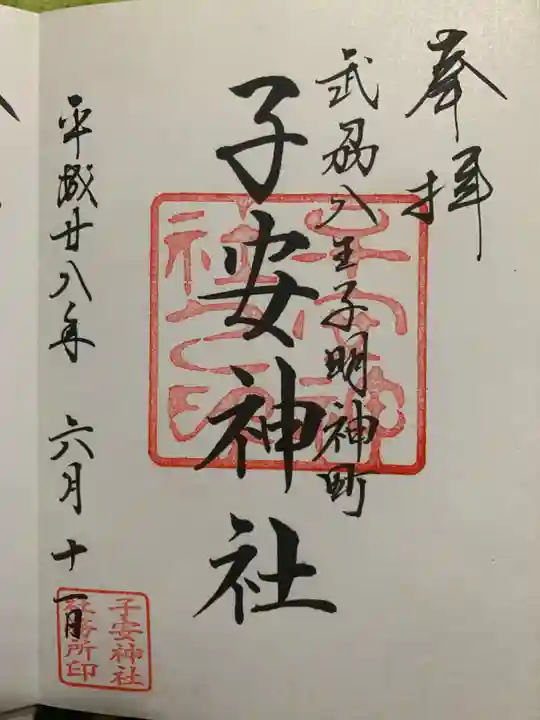 奉拝
武州八王子明神町
子安神社
平成廿八年 六月十一日
子安神社
社務所印
子安神
社之印